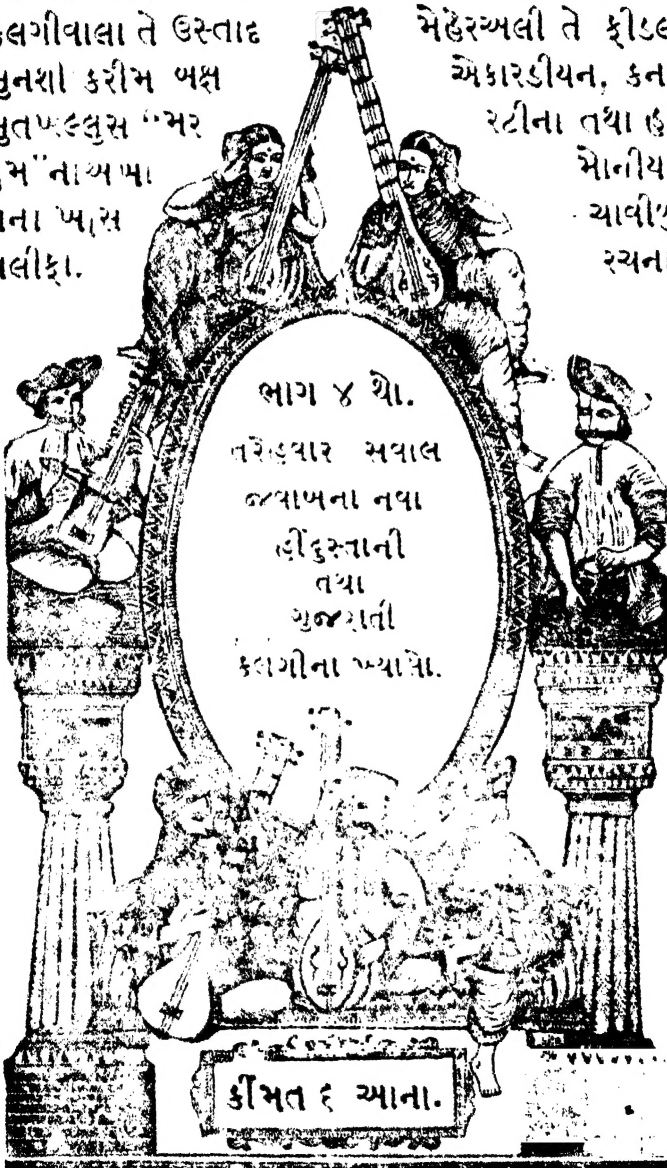 કલગીવાલા તે ઉસ્તાદ
મુનશી કરીમ બક્ષ
મુતખલ્લુસ "મર
હુમ" ના અખા
ડાના ખાસ
ખલીફા.
મેહેરઅલી તે ફીડલ
એકારડીયન, કન
રટીના તથા હ
મોનીય
ચાવીઓ
રચના
ભાગ ૪ થો.
તરેહવાર સવાલ
જવાબના નવા
હીંદુસ્તાની
તથા
ગુજરાતી
કલગીના ખ્યાલો.
કીંમત ૬ આના.